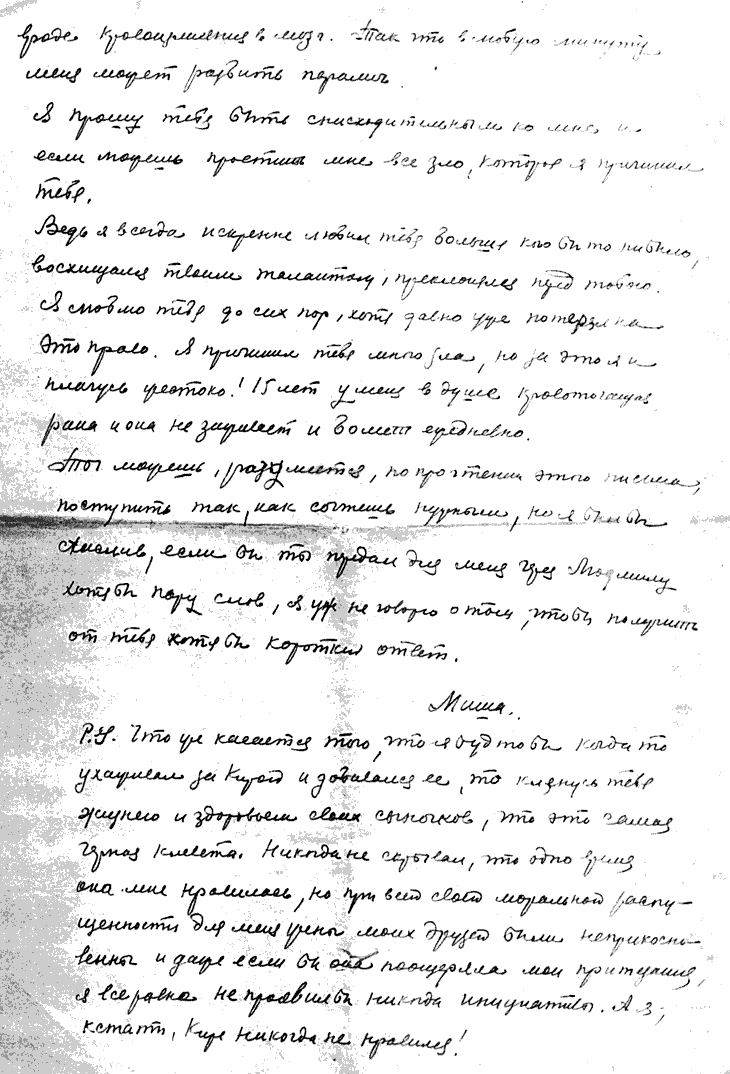 вроде кровоизлияния в мозг. Так что в любую минуту
меня может разбить паралич.
Я прошу тебя быть снисходительным ко мне и
если можешь простить мне все зло, которое я причинил
тебе.
Ведь я всегда искренне любил тебя больше кого бы то ни было,
восхищался твоим талантом, преклонялся пред тобою.
Я люблю тебя до сих пор, хотя давно уже потерял на
это право. Я причинил тебе много зла, но за это я и
плачусь жестоко! 15 лет у меня в душе кровоточащая
рана и она не заживает и болит ежедневно.
Ты можешь, разумеется, по прочтении этого письма,
поступить так, как сочтешь нужным, но я был бы
счастлив, если бы ты предал для меня через Людмилу
хотя бы пару слов, я уж не говорю о том, чтобы получить
от тебя хотя бы короткий ответ.
Миша.
P.S. Что же касается того, что я будто бы когда то
ухаживал за Кирой и добивался ее, то клянусь тебе
жизнею и здоровьем своих сыночков, что это самая
черная клевета. Никогда не скрывал, что одно время
она мне нравилась, но при всей своей моральной распу-
щенности для меня жены моих друзей были неприкосно-
венны и даже если бы она поощряла мои притязания,
я все равно не проявил бы никогда инициативы. А я,
кстати, Кире никогда не нравился!